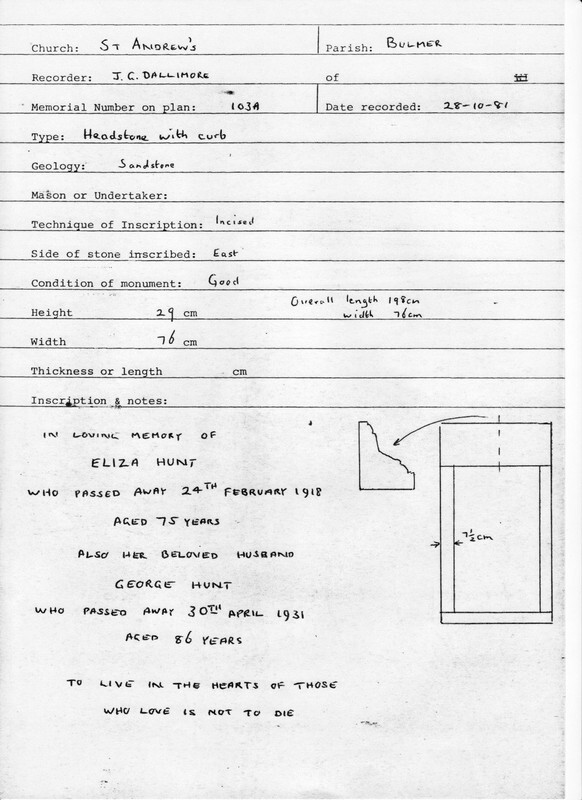 Church: ST ANDREW'S Parish: BULMER
Recorder: J. C. DALLIMORE of
Memorial Number on plan: 103A Date recorded: 28-10-81
Type: Headstone with curb
Geology: Sandstone
Mason or Undertaker:
Technique of Inscription: Incised
Side of stone inscribed: East
Condition of monument: Good
Height 29 cm Overall length 198cm
width 76cm
Width 76 cm
Thickness or length cm
Inscription & notes:
IN LOVING MEMORY OF
ELIZA HUNT
WHO PASSED AWAY 24TH FEBRUARY 1918
AGED 75 YEARS
ALSO HER BELOVED HUSBAND
GEORGE HUNT
WHO PASSED AWAY 30TH APRIL 1931
AGED 86 YEARS
TO LIVE IN THE HEARTS OF THOSE
WHO LOVE IS NOT TO DIE
7½cm